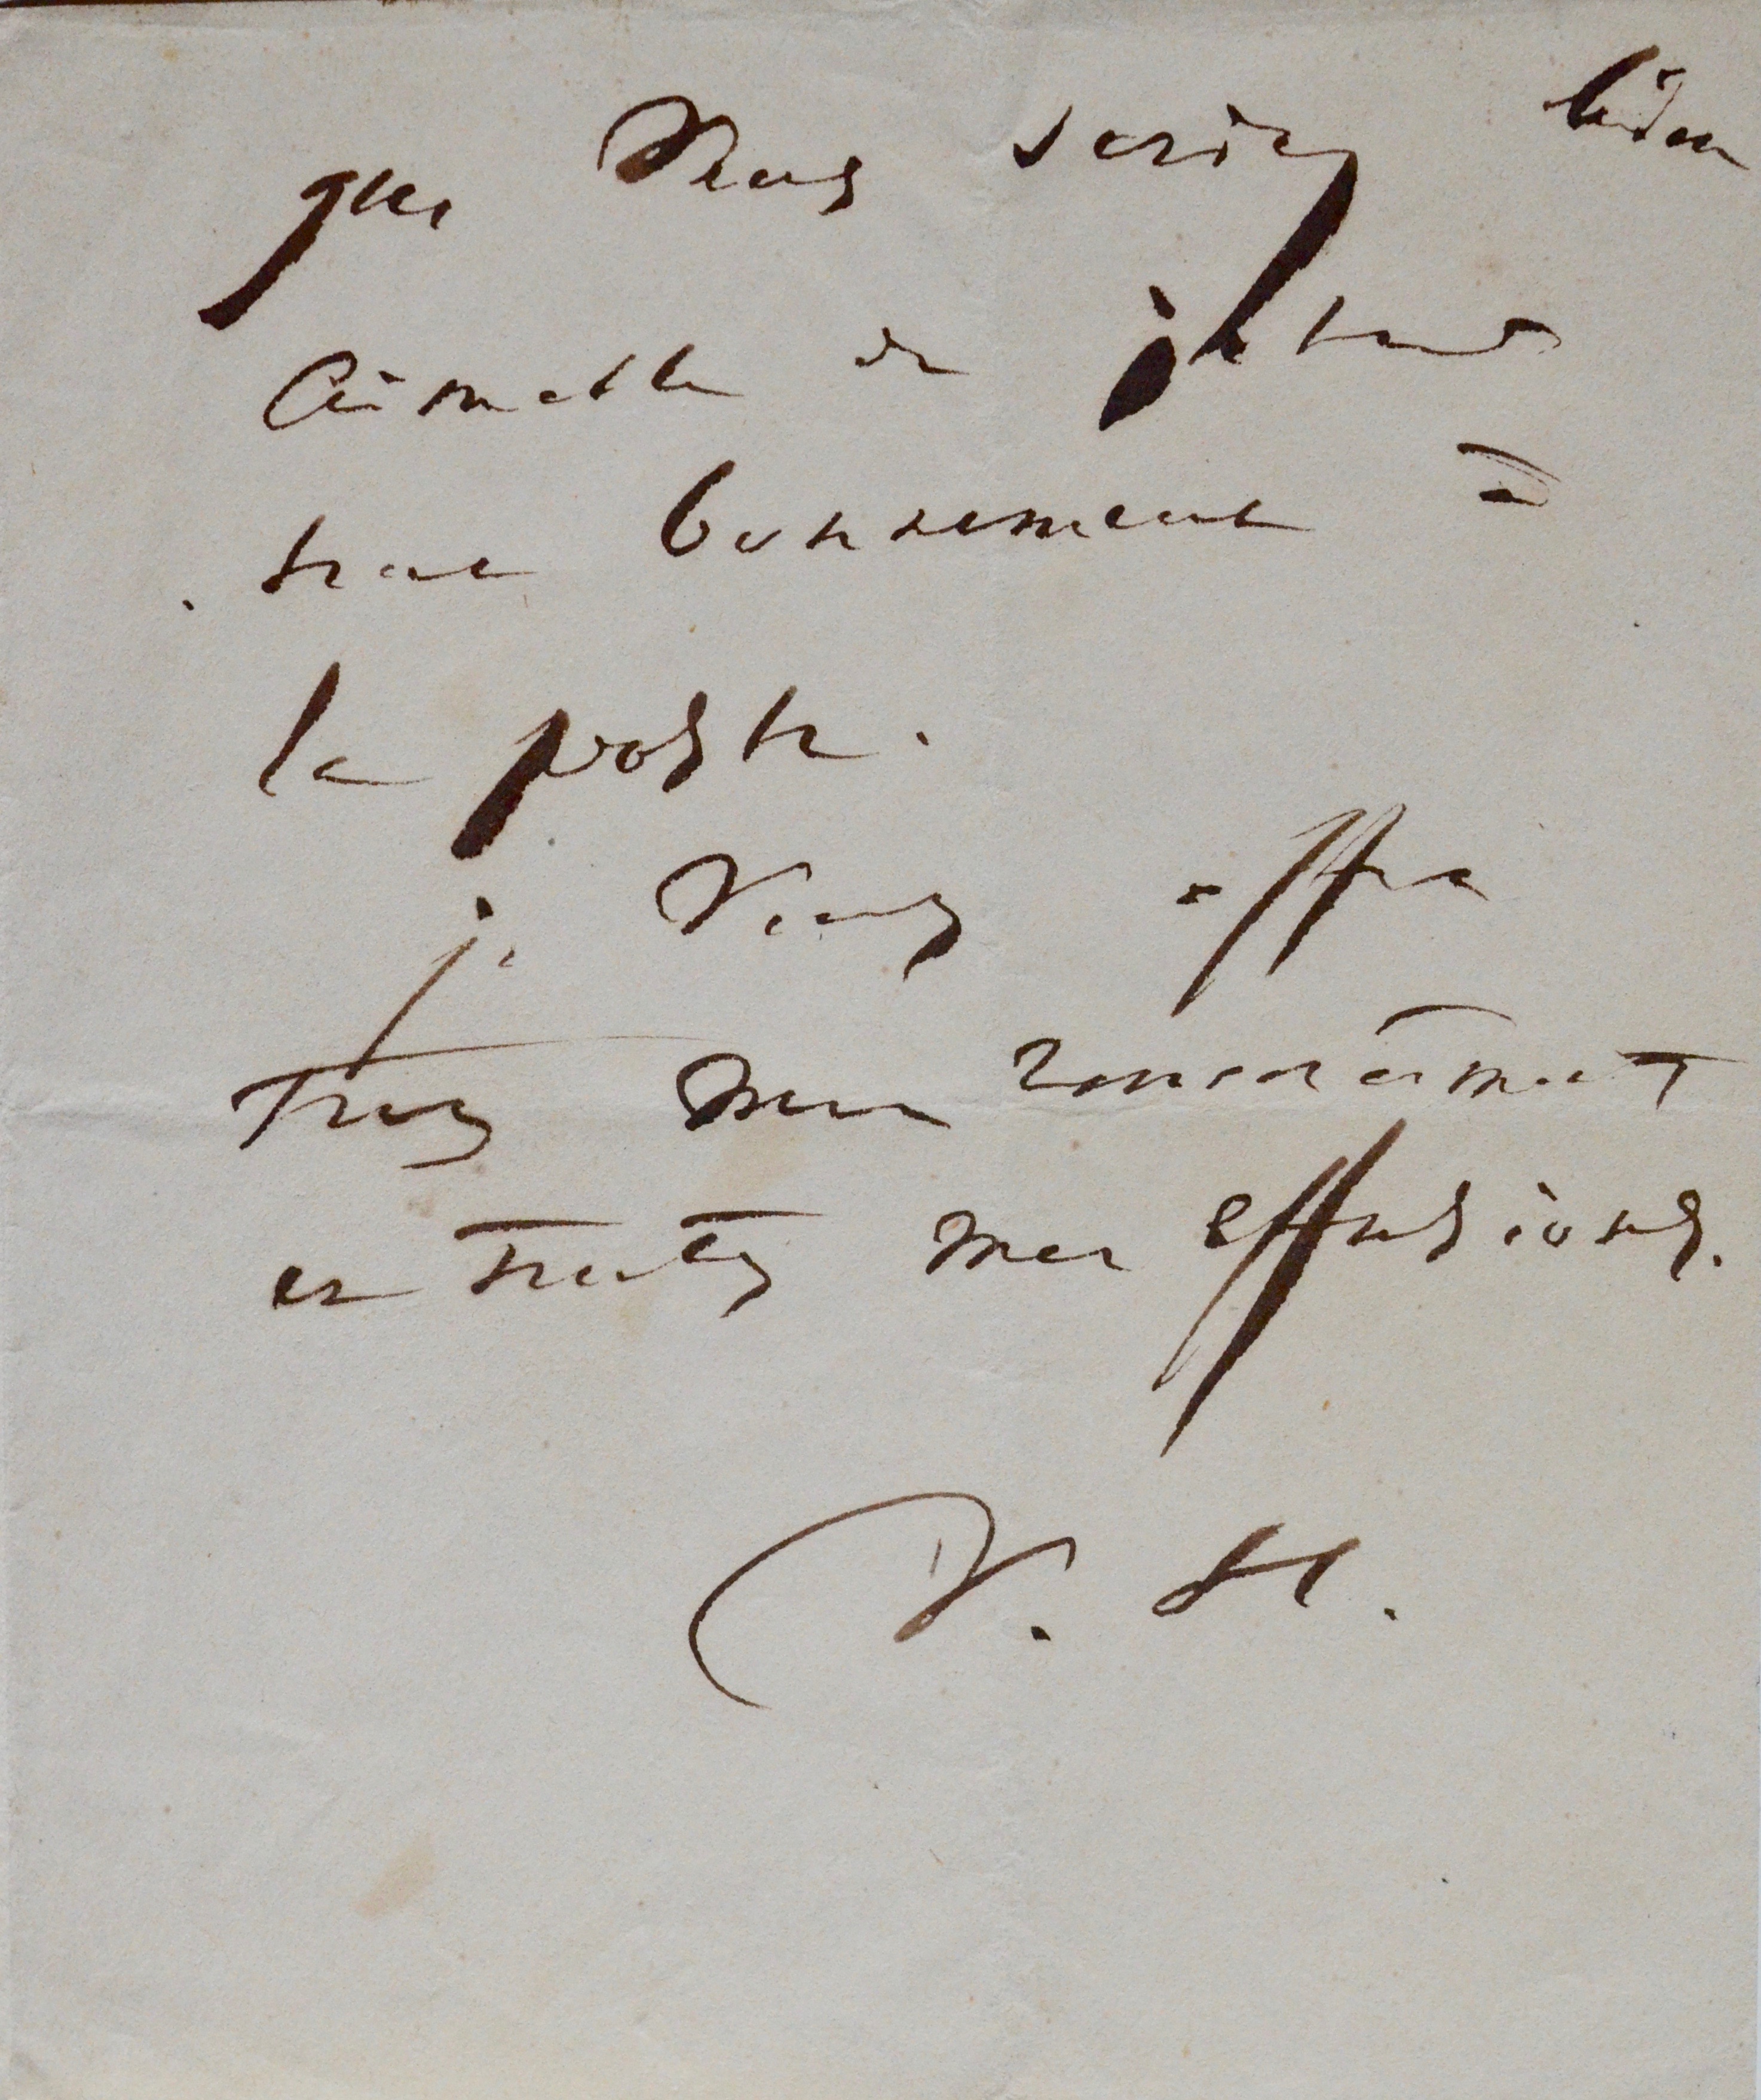 que vous seriez bien
aimable de jeter
tout bonnement à
la poste.
je vous offre
tous mes remerciements
et toutes mes effusions.
V. H.